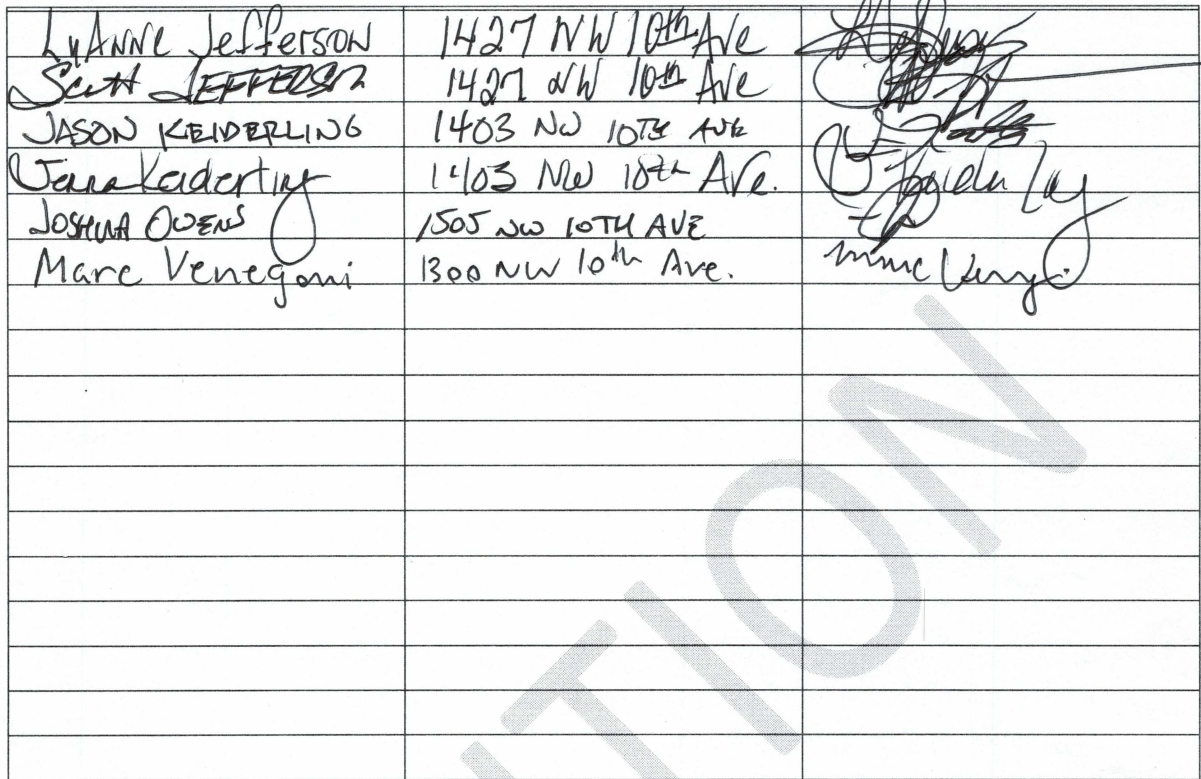 LyAnne Jefferson 1427 NW 10th Ave
Scott JEFFERSON 1427 NW 10th Ave
JASON KEIDERLING 1403 NW 10TH AVE
Jenna Keiderling 1403 NW 10th Ave.
JOSHUA OWENS 1505 NW 10TH AVE
Marc Venegoni 1300 NW 10th Ave.
TION